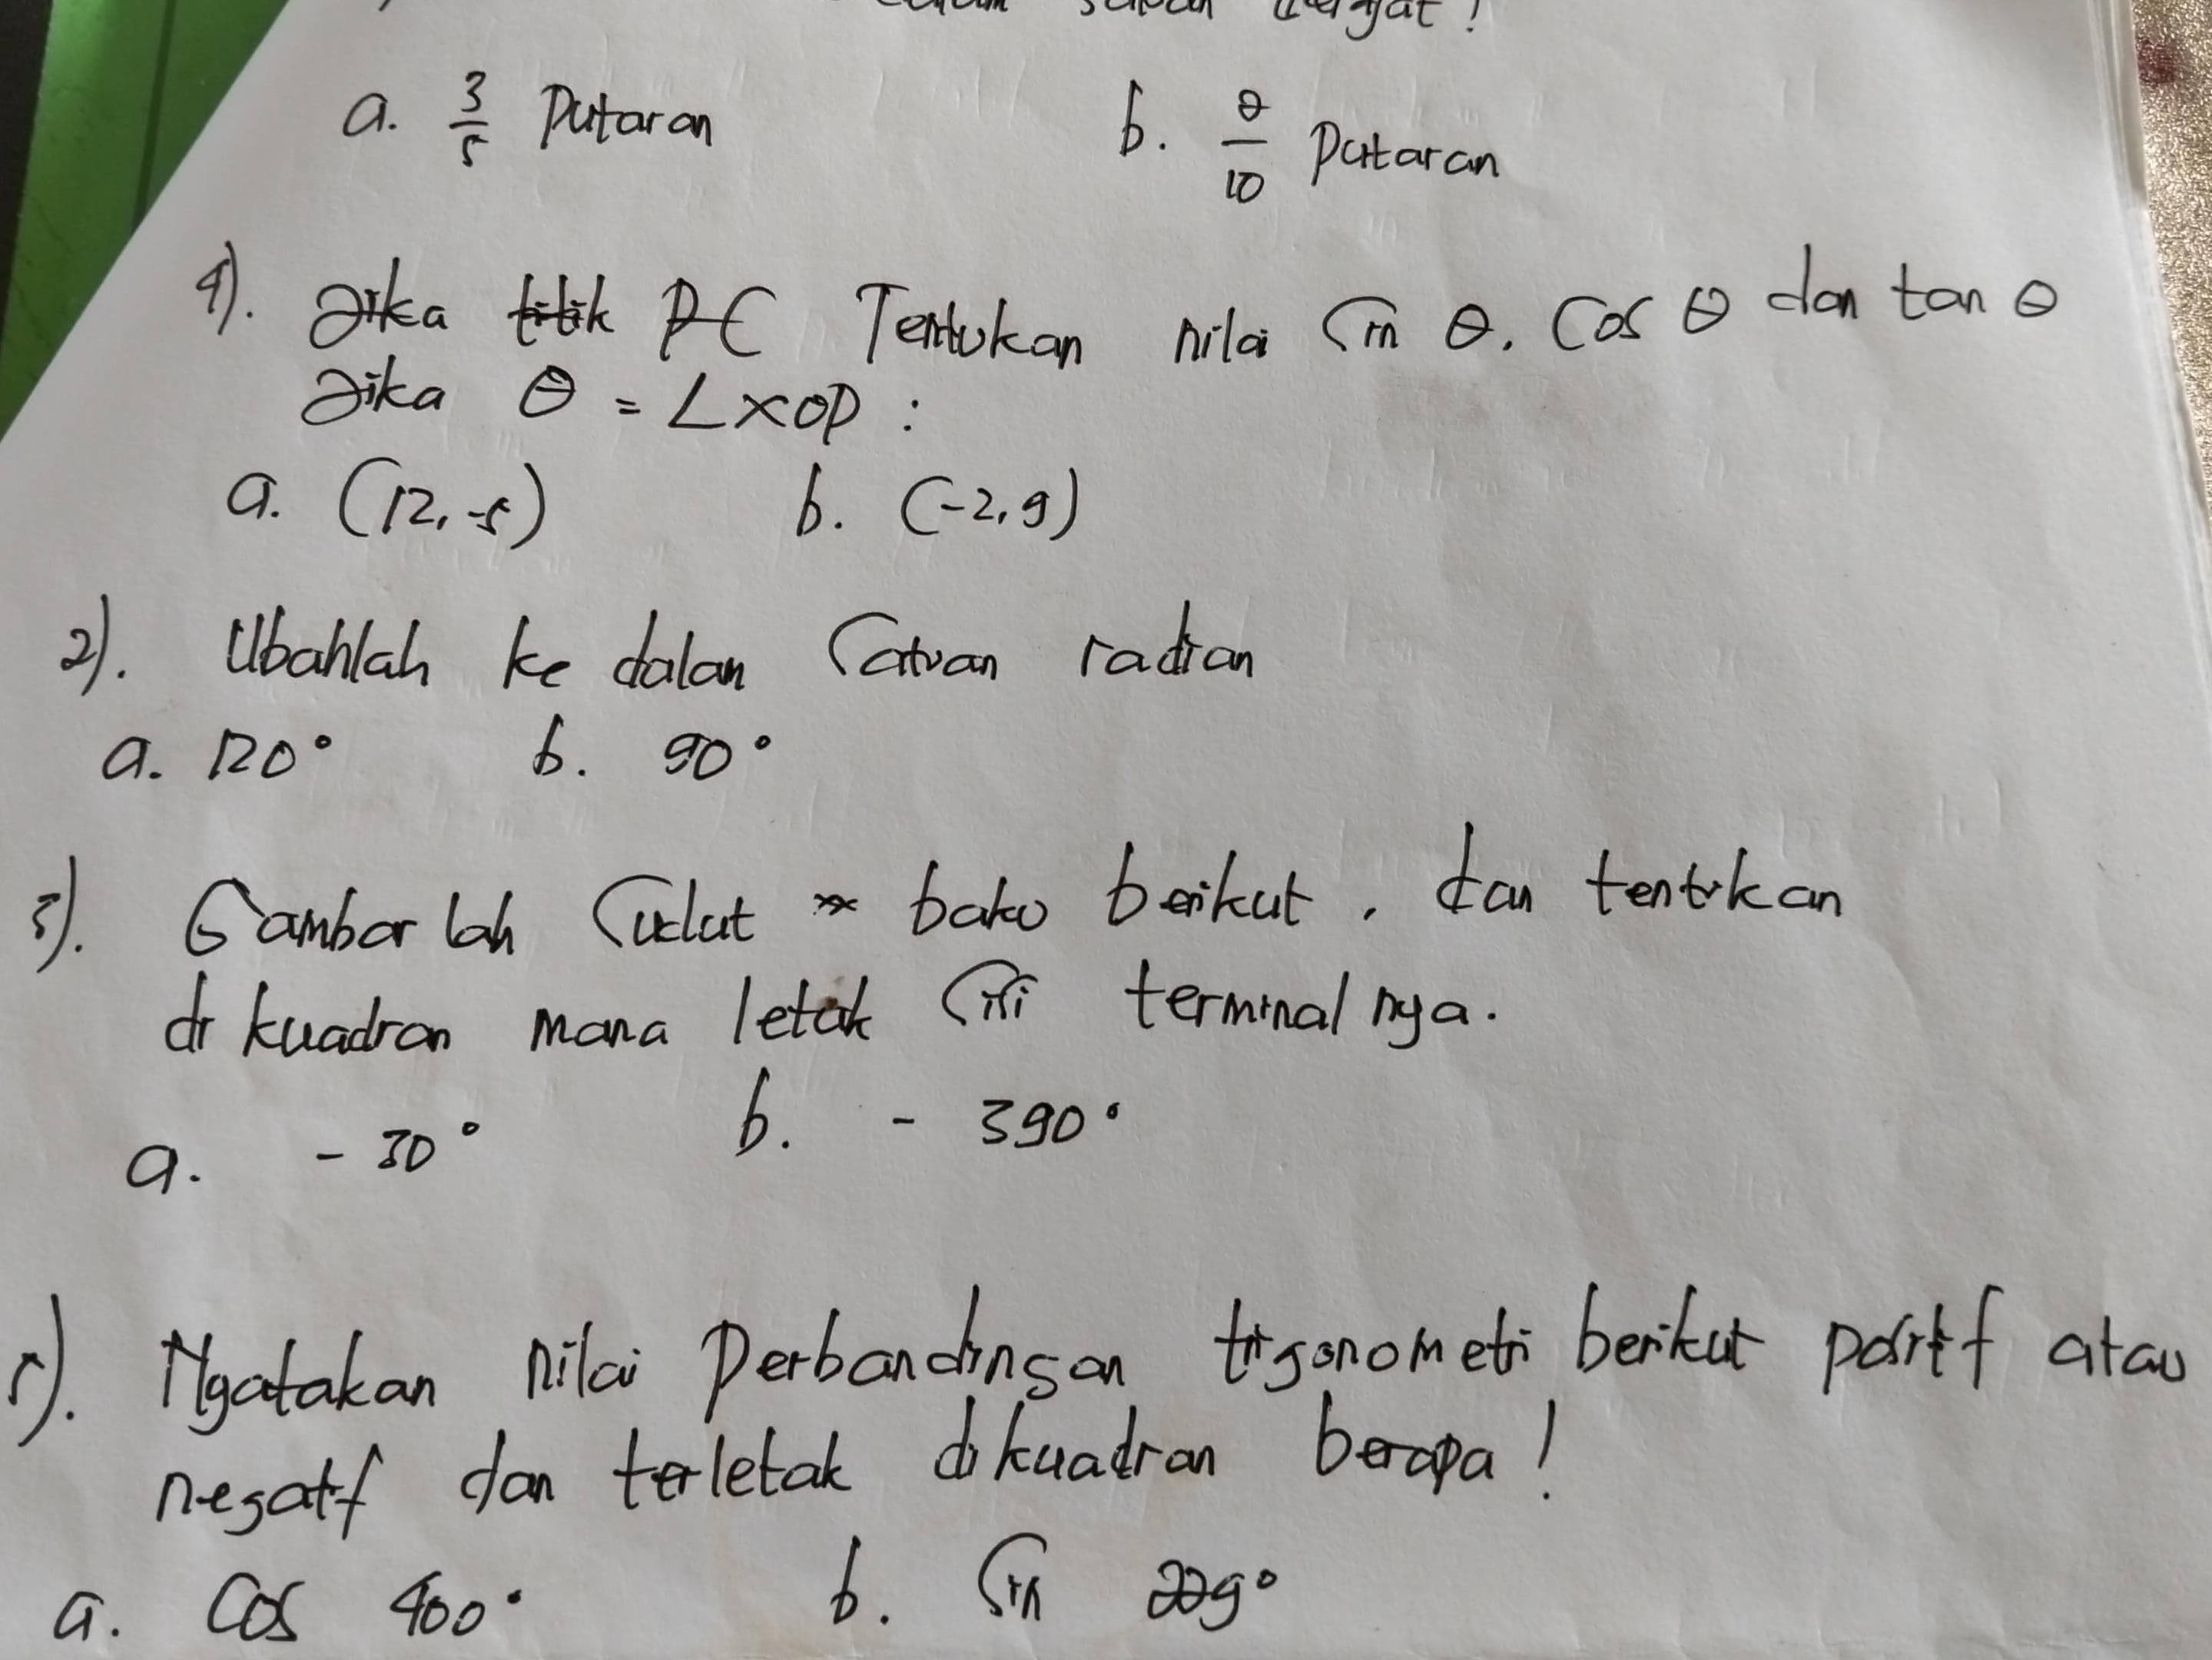 satuan derajat!
a. 3/5 Putaran b. 8/10 Putaran
4). Jika titik P( Tentukan nilai Sin θ. Cos θ dan tan θ
Jika θ = ∠XOP :
a. (12, -5) b. (-2, 9)
2). Ubahlah ke dalan Satuan radian
a. 120° b. 90°
3). Gambar lah Sudut baku berikut, dan tentukan
di kuadran mana letak Sisi terminal nya.
a. - 30° b. - 390°
5). Nyatakan nilai Perbandingan trigonometri berikut positif atau
negatif dan terletak dikuadran berapa!
a. Cos 400° b. Sin 229°